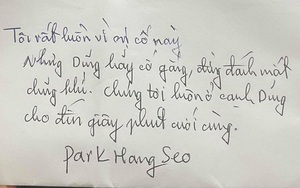 Tôi rất buồn vì sự cố này
Nhưng Dũng hãy cố gắng, đừng đánh mất
dũng khí. chúng tôi luôn ở cạnh Dũng
cho đến giây phút cuối cùng.
park Hang Seo